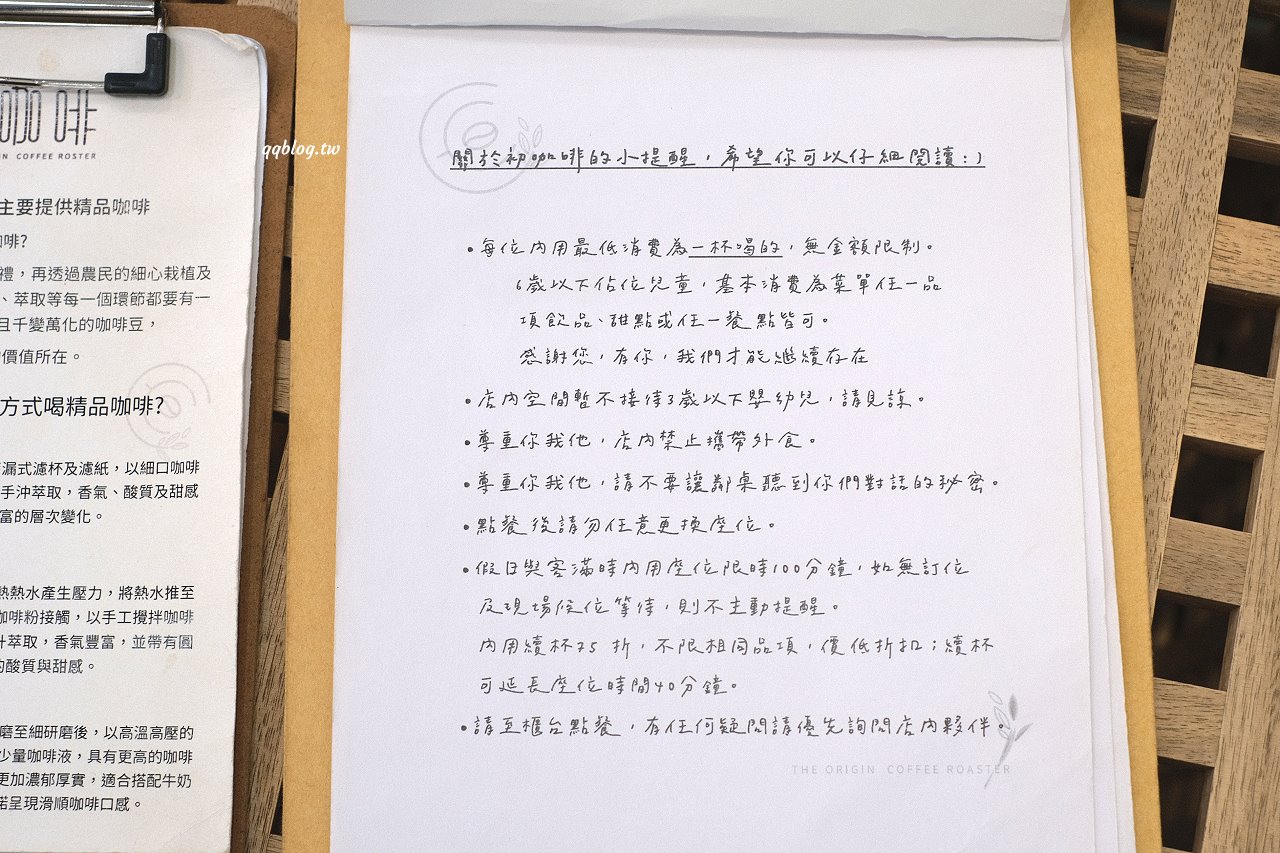 ODO 啡
IN COFFEE ROSTER
主要提供精品咖啡
啡?
禮，再透過農民的細心栽植及
、萃取等每一個環節都要有一
且千變萬化的咖啡豆，
價值所在。
方式喝精品咖啡?
漏式濾杯及濾紙，以細口咖啡
手沖萃取，香氣、酸質及甜感
富的層次變化。
熱熱水產生壓力，將熱水推至
咖啡粉接觸，以手工攪拌咖啡
萃取，香氣豐富，並帶有圓
的酸質與甜感。
磨至細研磨後，以高溫高壓的
少量咖啡液，具有更高的咖啡
更加濃郁厚實，適合搭配牛奶
呈現滑順咖啡口感。
qqblog.tw
關於初咖啡的小提醒，希望你可以仔細閱讀:)
•每位內用最低消費為一杯喝的，無金額限制。
6歲以下佔位兒童，基本消費為菜單任一品
項飲品、甜點或任一餐點皆可。
感謝您，有你，我們才能繼續存在
•店內空間暫不接待3歲以下嬰幼兒，請見諒。
•尊重你我他，店內禁止攜帶外食。
•尊重你我他，請不要讓鄰桌聽到你們對話的秘密。
•點餐後請勿任意更換座位。
•假日與客滿時內用座位限時100分鐘，如無訂位
及現場候位等待，則不主動提醒。
內用續杯75 折，不限相同品項，價低折扣；續杯
可延長座位時間40分鐘。
•請至櫃台點餐，有任何疑問請優先詢問店內夥伴。
THE ORIGIN COFFEE ROASTER